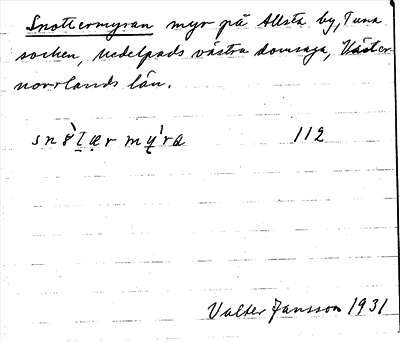 Snottermyran myr på Allsta by, Tuna
socken, Medelpads västra domsaga, Väster-
norrlands län.
112
Valter Jansson 1931